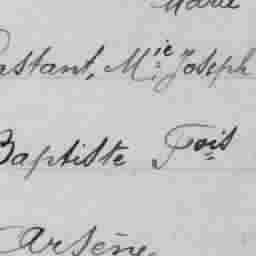 Marie
astant, Mie Joseph
Baptiste Fois
Arsène